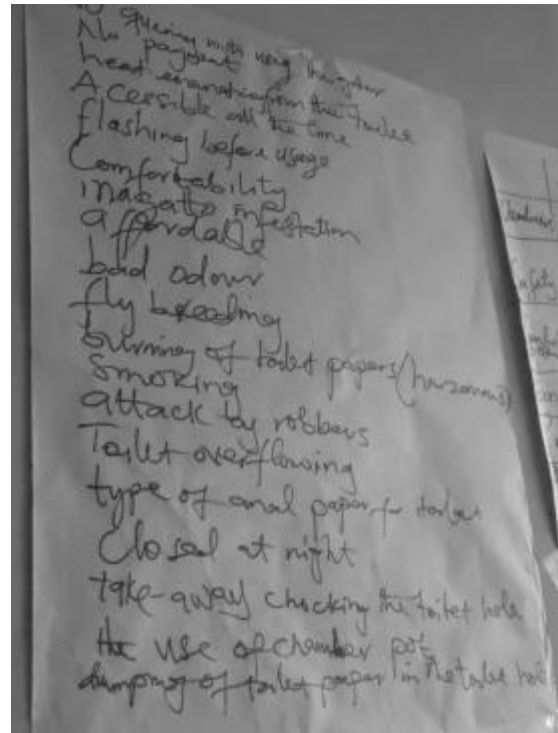 No queuing
No payment
heat emanating from the toilet
Acessible all the time
flashing before usage
Comfortability
maggots infestation
affordable
bad odour
fly breeding
burning of toilet papers
smoking
attack by robbers
Toilet overflowing
type of anal paper for toilet
Closed at night
take-away chocking the toilet hole
the use of chamber pot
dumping of toilet paper in the toilet hole